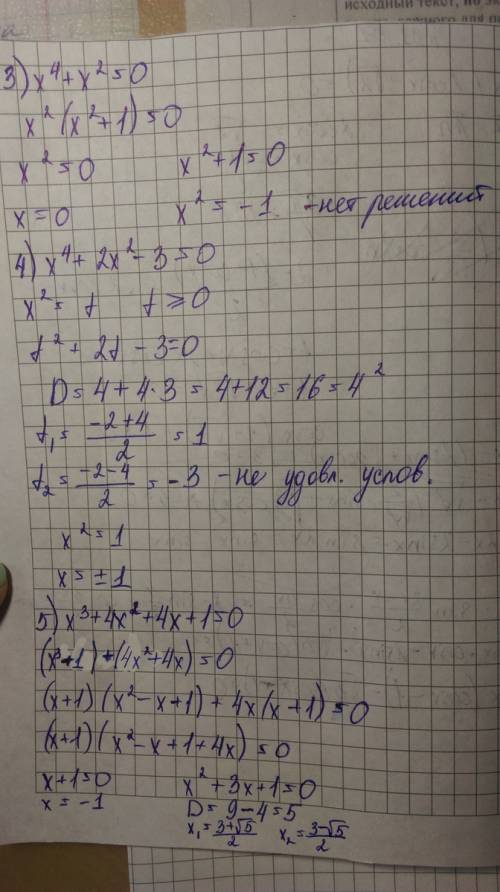 исходный текст, но
3) x⁴ + x² = 0
x² (x² + 1) = 0
x² = 0 x² + 1 = 0
x = 0 x² = -1 - нет решений
4) x⁴ + 2x² - 3 = 0
x² = t t ≥ 0
t² + 2t - 3 = 0
D = 4 + 4·3 = 4 + 12 = 16 = 4²
t₁ = (-2+4)/2 = 1
t₂ = (-2-4)/2 = -3 - не удовл. услов.
x² = 1
x = ±1
5) x³ + 4x² + 4x + 1 = 0
(x³ + 1) + (4x² + 4x) = 0
(x+1) (x² - x + 1) + 4x (x + 1) = 0
(x+1) (x² - x + 1 + 4x) = 0
x + 1 = 0 x² + 3x + 1 = 0
x = -1 D = 9 - 4 = 5
x₁ = (3+√5)/2 x₂ = (3-√5)/2